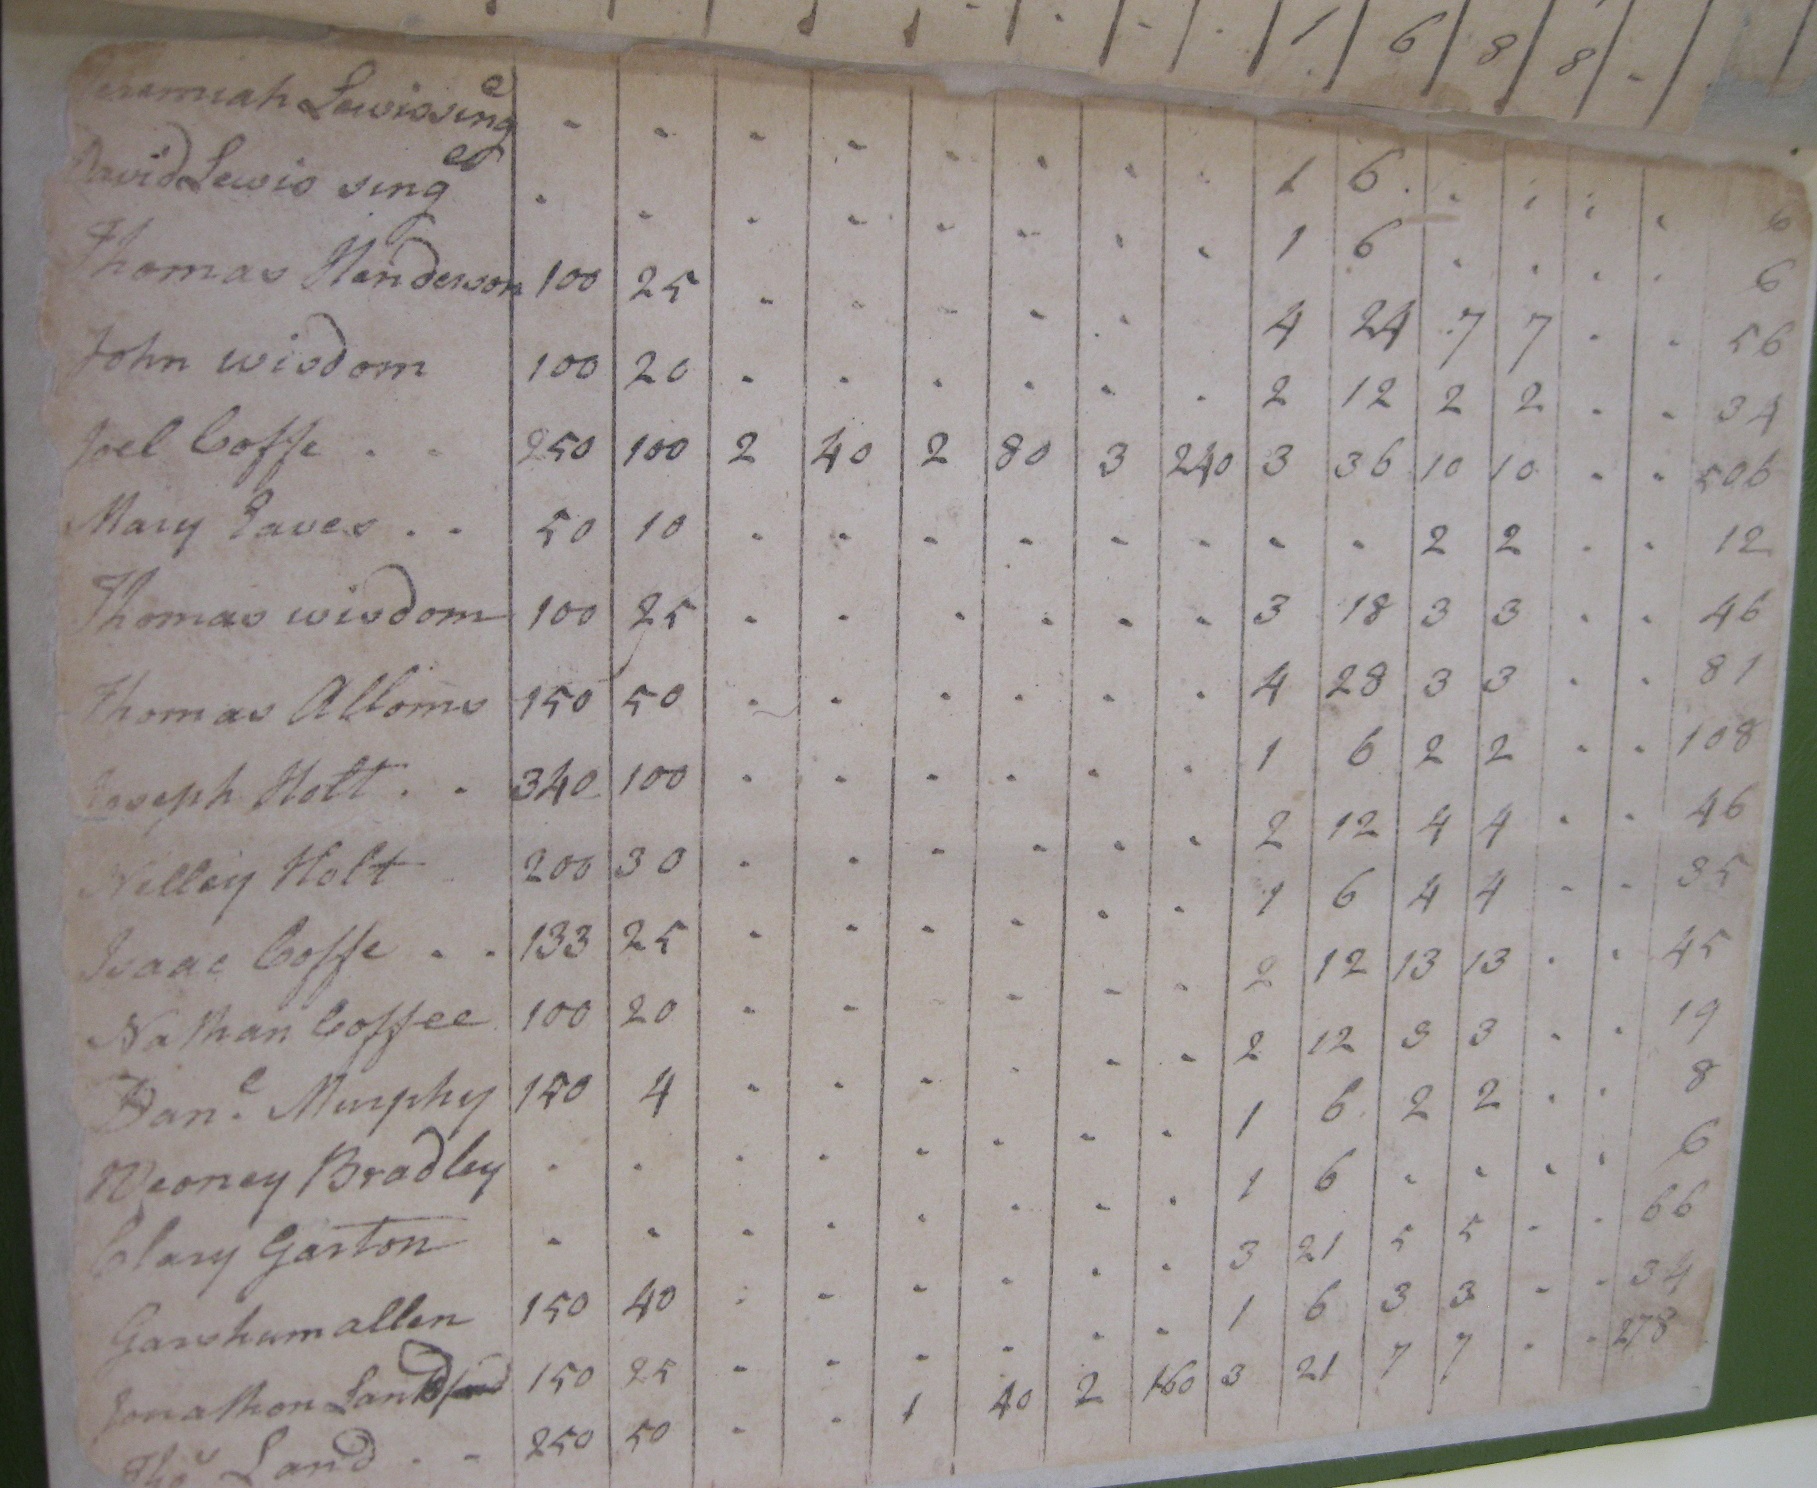 1 6 8 8
Jeremiah Lewis singe - - - - - - - - 1 6 . . . . 6
David Lewis singer - - - - - - - - 1 6 . . . . 6
Thomas Henderson 100 25 - - - - - - 4 24 7 7 . . 56
John wisdom 100 20 - - - - - - 2 12 2 2 . . 34
Joel Coffe . . 250 100 2 40 2 80 3 240 3 36 10 10 . . 506
Mary Eaves . . 50 10 - - - - - - - - 2 2 . . 12
Thomas wisdom 100 25 - - - - - - 3 18 3 3 . . 46
Thomas Alloms 150 50 - - - - - - 4 28 3 3 . . 81
Joseph Holt . . 340 100 - - - - - - 1 6 2 2 . . 108
Nilley Holt 200 30 - - - - - - 2 12 4 4 . . 46
Isaac Coffe . . 133 25 - - - - - - 1 6 4 4 . . 35
Nathan Coffee 100 20 - - - - - - 2 12 13 13 . . 45
Danl. Murphy 150 4 - - - - - - 2 12 3 3 . . 19
Weoney Bradley - - - - - - - - 1 6 2 2 . . 8
Clary Garton - - - - - - - - 1 6 . . . . 6
Garshum allen 150 40 - - - - - - 3 21 5 5 . . 66
Jonathon 150 25 - - - - - - 1 6 3 3 . . 34
Thos Land . . 250 50 - - 1 40 2 160 3 21 7 7 . . 278